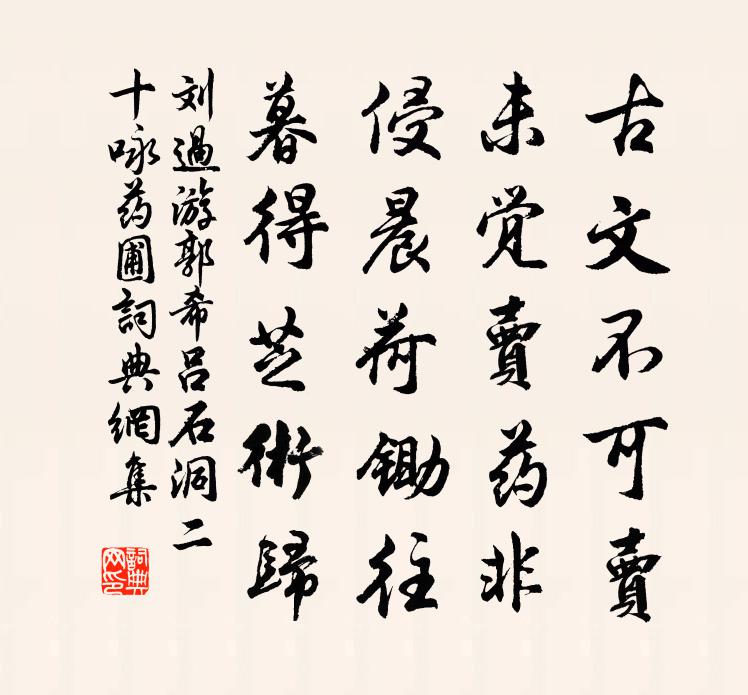 古文不可賣
未觉賣药非
侵晨荷鋤往
暮得芝術歸
刘過游郭希吕石洞二
十咏药圃詞典網集
詞典网印